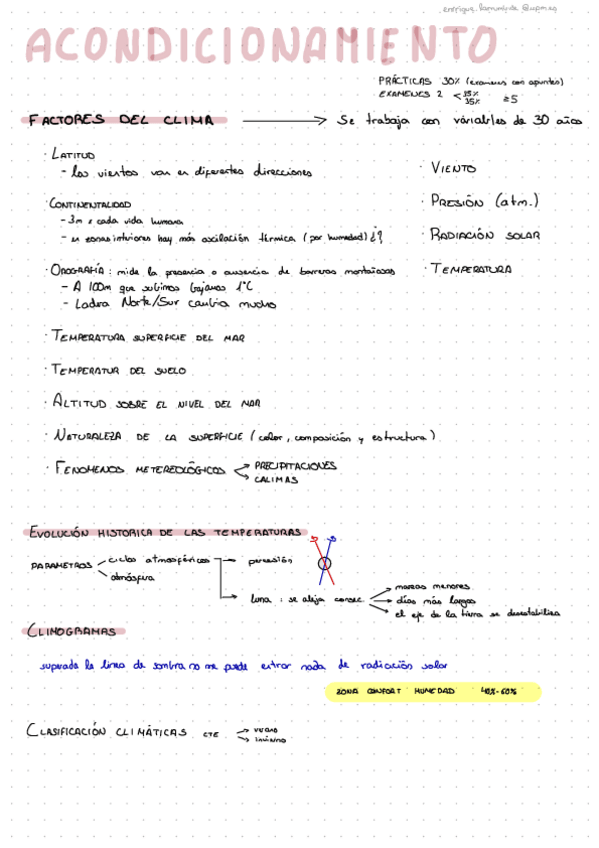 ACONDICIONAMIENTO
PRÁCTICAS 30% (examenes con apuntes)
EXAMENES 2 < 35% 35% ≥5
FACTORES DEL CLIMA → Se trabaja con váriables de 30 años
· LATITUD
- los vientos van en diferentes direcciones
· CONTINENTALIDAD
- 3m x cada vida humana
- en zonas interiores hay más oscilación térmica (por humedad) ¿?
· OROGRAFÍA: mide la presencia o ausencia de barreras montañosas
- A 100m que subimos bajamos 1°C
- Ladera Norte/Sur cambia mucho
· TEMPERATURA SUPERFICIE DEL MAR
· TEMPERATUR DEL SUELO
· ALTITUD SOBRE EL NIVEL DEL MAR
· NATURALEZA DE LA SUPERFICIE (color, composición y estructura)
· FENOMENOS METEREOLÓGICOS
PRECIPITACIONES
CALIMAS
· VIENTO
· PRESIÓN (atm.)
· RADIACIÓN SOLAR
· TEMPERATURA
EVOLUCIÓN HISTORICA DE LAS TEMPERATURAS
PARAMETROS
ciclos atmosféricos
atmósfera
percesión
luna: se aleja consec
mareas menores
días más largos
el eje de la tierra se desestabiliza
CLINOGRAMAS
superada la linea de sombra no me puede entrar nada de radiación solar
ZONA CONFORT HUMEDAD 40%-60%
CLASIFICACIÓN CLIMÁTICAS CTE
verano
invierno